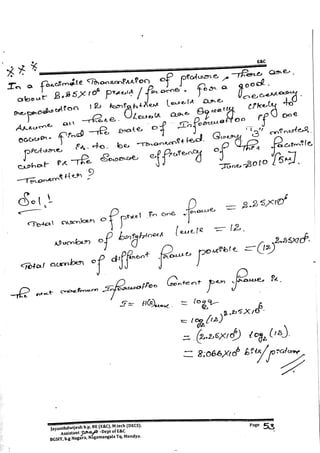 E&C
In a facsimile Transmission of picture, There are
about 2.25X10⁶ pixels / frame. for a good
reproduction 12 brightness levels are necessary
Assume all These levels are Equally likely to
occur. Find The rate of Information if one
picture is to be Transmitted. Every "3" minutes.
what is The Source efficiency of This facsimile
Transmitter? June-2010 [5M].
Sol:-
Total number of pixel in one frame = 2.25X10⁶
Number of brightness levels = 12.
Total number of different frame possible = (12)^2.25X10⁶.
The net maximum Information Content per frame is.
I = H(S)max = log₂ q
= log₂ (12)^2.25X10⁶
= (2.25X10⁶) log₂ (12).
= 8.066X10⁶ bits/picture
Page 53